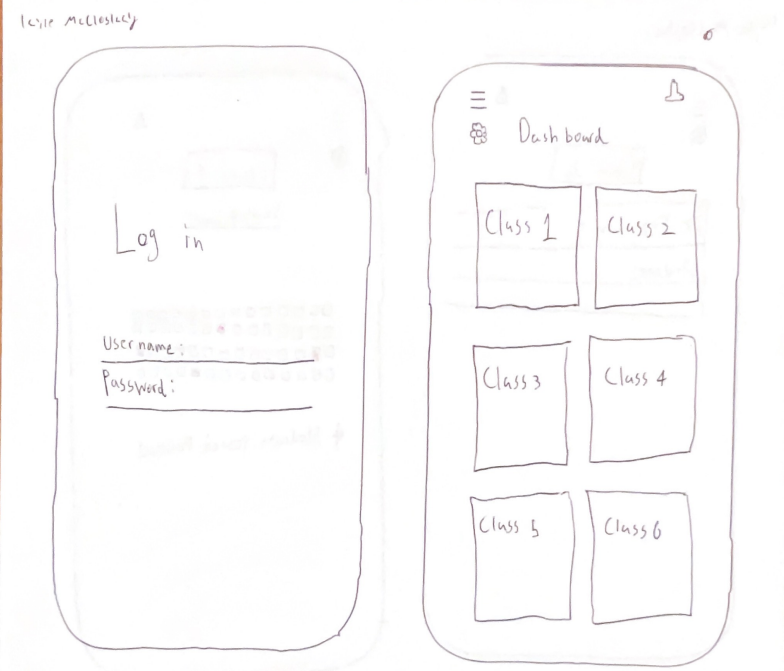 Log in
Username:
Password:
Dashboard
Class 1
Class 2
Class 3
Class 4
Class 5
Class 6